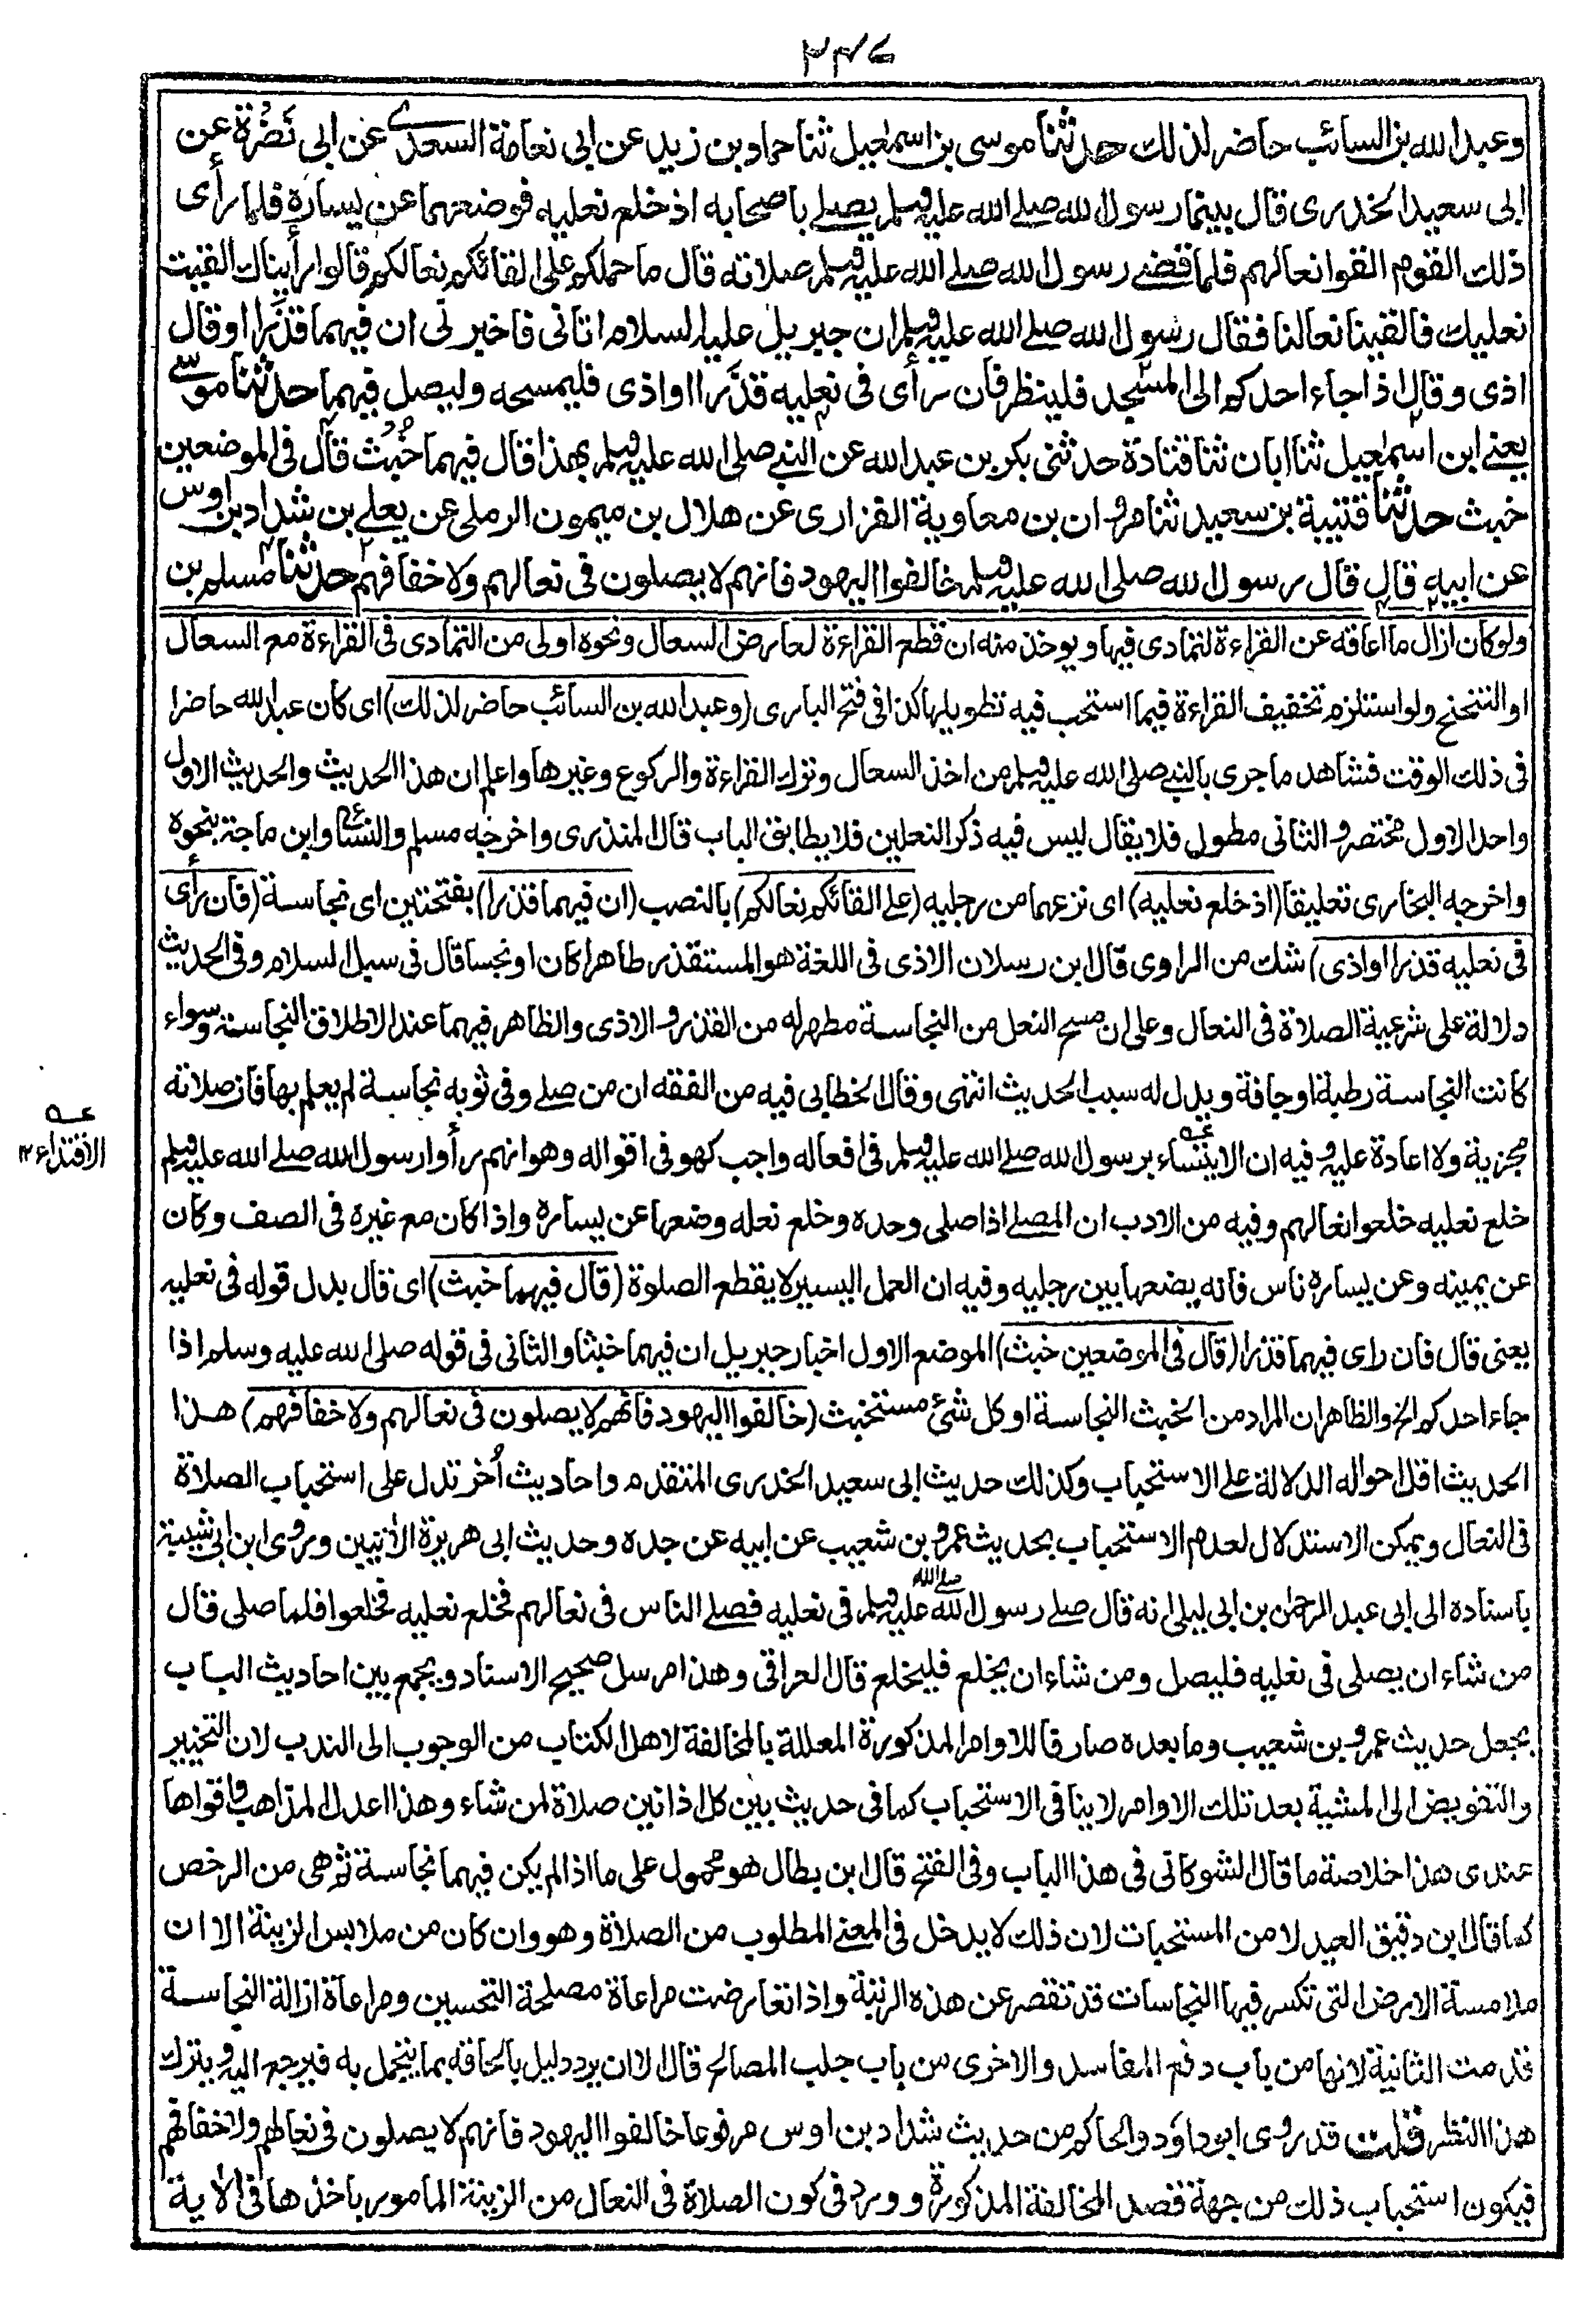 ٢٤٦
وعبد الله بن السائب حاضر لذلك حدثنا موسى بن اسمعيل ثنا حماد بن زيد عن ابى نعامة السعدى عن ابى نَضْرة عن
ابى سعيد الخدرى قال بينما رسول الله صلے الله عليه وسلم يصلے باصحابه اذ خلع نعليه فوضعهما عن يساره فلما رأى
ذلك القوم القوا نعالهم فلما قضے رسول الله صلے الله عليه وسلم صلاته قال ما حملكم على القائكم نعالكم قالوا رأيناك القيت
نعليك فالقينا نعالنا فقال رسول الله صلے الله عليه وسلم ان جبريل عليه السلام اتانى فاخبرنى ان فيهما قذَرا او قال
اذى وقال اذا جاء احدكم الى المسجد فلينظر فان رأى فى نعليه قذَرا او اذى فليمسحه وليصل فيهما حدثنا موسے
يعنے ابن اسمعيل ثنا ابان ثنا قتادة حدثنى بكر بن عبد الله عن النبے صلى الله عليه وسلم بهذا قال فيهما خُبُث قال فى الموضعين
خبث حدثنا قتيبة بن سعيد ثنا مروان بن معاوية الفزارى عن هلال بن ميمون الرملى عن يعلے بن شداد بن اوس
عن ابيه قال قال رسول الله صلى الله عليه وسلم خالفوا اليهود فانهم لا يصلون فى نعالهم ولا خفافهم حدثنا مسلم بن
ولو كان ازال ما اعاقه عن القراءة لتمادى فيها ويوخذ منه ان قطع القراءة لعارض السعال ونحوه اولى من التمادى فى القراءة مع السعال
او التنحنح ولو استلزم تخفيف القراءة فيما استحب فيه تطويلها كذا فى فتح البارى (وعبد الله بن السائب حاضر لذلك) اى كان عبد الله حاضرا
فى ذلك الوقت فشاهد ما جرى بالنبے صلى الله عليه وسلم من اخذ السعال وترك القراءة والركوع وغيرها واعلم ان هذا الحديث والحديث الاول
واحد الاول مختصر والثانى مطول فلا يقال ليس فيه ذكر النعلين فلا يطابق الباب قال المنذرى واخرجه مسلم والنسائى وابن ماجة بنحوه
واخرجه البخارى تعليقا (اذ خلع نعليه) اى نزعهما من رجليه (على القائكم نعالكم) بالنصب (ان فيهما قذرا) بفتحتين اى نجاسة (فان رأى
فى نعليه قذرا او اذى) شك من الراوى قال ابن رسلان الاذى فى اللغة هو المستقذر طاهرا كان او نجسا قال فى سبل السلام وفى الحديث
دلالة على شرعية الصلاة فى النعال وعلى ان مسح النعل من النجاسة مطهر له من القذر والاذى والظاهر فيهما عند الاطلاق النجاسة وسواء
كانت النجاسة رطبة او جافة ويدل له سبب الحديث انتهى وقال الخطابى فيه من الفقه ان من صلے وفى ثوبه نجاسة لم يعلم بها فان صلاته
مجزية ولا اعادة عليه وفيه ان الايتساء برسول الله صلے الله عليه وسلم فى افعاله واجب كهو فى اقواله وهو انهم رأوا رسول الله صلے الله عليه وسلم
عـه
الاقتداء ١٢
خلع نعليه خلعوا نعالهم وفيه من الادب ان المصلے اذا صلى وحده وخلع نعله وضعها عن يساره واذا كان مع غيره فى الصف وكان
عن يمينه وعن يساره ناس فانه يضعها بين رجليه وفيه ان العمل اليسير لا يقطع الصلوة (قال فيهما خبث) اى قال بدل قوله فى نعليه
يعنى قال فان راى فيهما قذرا (قال فى الموضعين خبث) الموضع الاول اخبار جبريل ان فيهما خبثا والثانى فى قوله صلى الله عليه وسلم اذا
جاء احدكم الخ والظاهر ان المراد من الخبث النجاسة او كل شئ مستخبث (خالفوا اليهود فانهم لا يصلون فى نعالهم ولا خفافهم) هذا
الحديث اقل احواله الدلالة على الاستحباب وكذلك حديث ابى سعيد الخدرى المتقدم واحاديث اُخر تدل على استحباب الصلاة
فى النعال ويمكن الاستدلال لعدم الاستحباب بحديث عمرو بن شعيب عن ابيه عن جده وحديث ابى هريرة الاتيين وروى ابن ابى شيبة
باسناده الى ابى عبد الرحمن بن ابى ليلى انه قال صلے رسول الله صلے الله عليه وسلم فى نعليه فصلے الناس فى نعالهم فخلع نعليه فخلعوا فلما صلى قال
من شاء ان يصلى فى نعليه فليصل ومن شاء ان يخلع فليخلع قال العراقى وهذا مرسل صحيح الاسناد ويجمع بين احاديث الباب
بجعل حديث عمرو بن شعيب وما بعده صارفا للاوامر المذكورة المعللة بالمخالفة لاهل الكتاب من الوجوب الى الندب لان التخيير
والتفويض الى المشية بعد تلك الاوامر لا ينافى الاستحباب كما فى حديث بين كل اذانين صلاة لمن شاء وهذا اعدل المذاهب واقواها
عندى هذا خلاصة ما قال الشوكانى فى هذا الباب وفى الفتح قال ابن بطال هو محمول على ما اذا لم يكن فيهما نجاسة ثم هى من الرخص
كما قال ابن دقيق العيد لا من المستحبات لان ذلك لا يدخل فى المعنے المطلوب من الصلاة وهو وان كان من ملابس الزينة الا ان
ملامسة الارض التى تكسر فيها النجاسات قد تقصر عن هذه الرتبة واذا تعارضت مراعاة مصلحة التحسين ومراعاة ازالة النجاسة
قدمت الثانية لانها من باب دفع المفاسد والاخرى من باب جلب المصالح قال الا ان يرد دليل بالحاقه بما يتجمل به فيرجع اليه ويترك
هذا النظر قلت قد روى ابو داود والحاكم من حديث شداد بن اوس مرفوعا خالفوا اليهود فانهم لا يصلون فى نعالهم ولا خفافهم
فيكون استحباب ذلك من جهة قصد المخالفة المذكورة وورد فى كون الصلاة فى النعال من الزينة المامور باخذها فى الاية